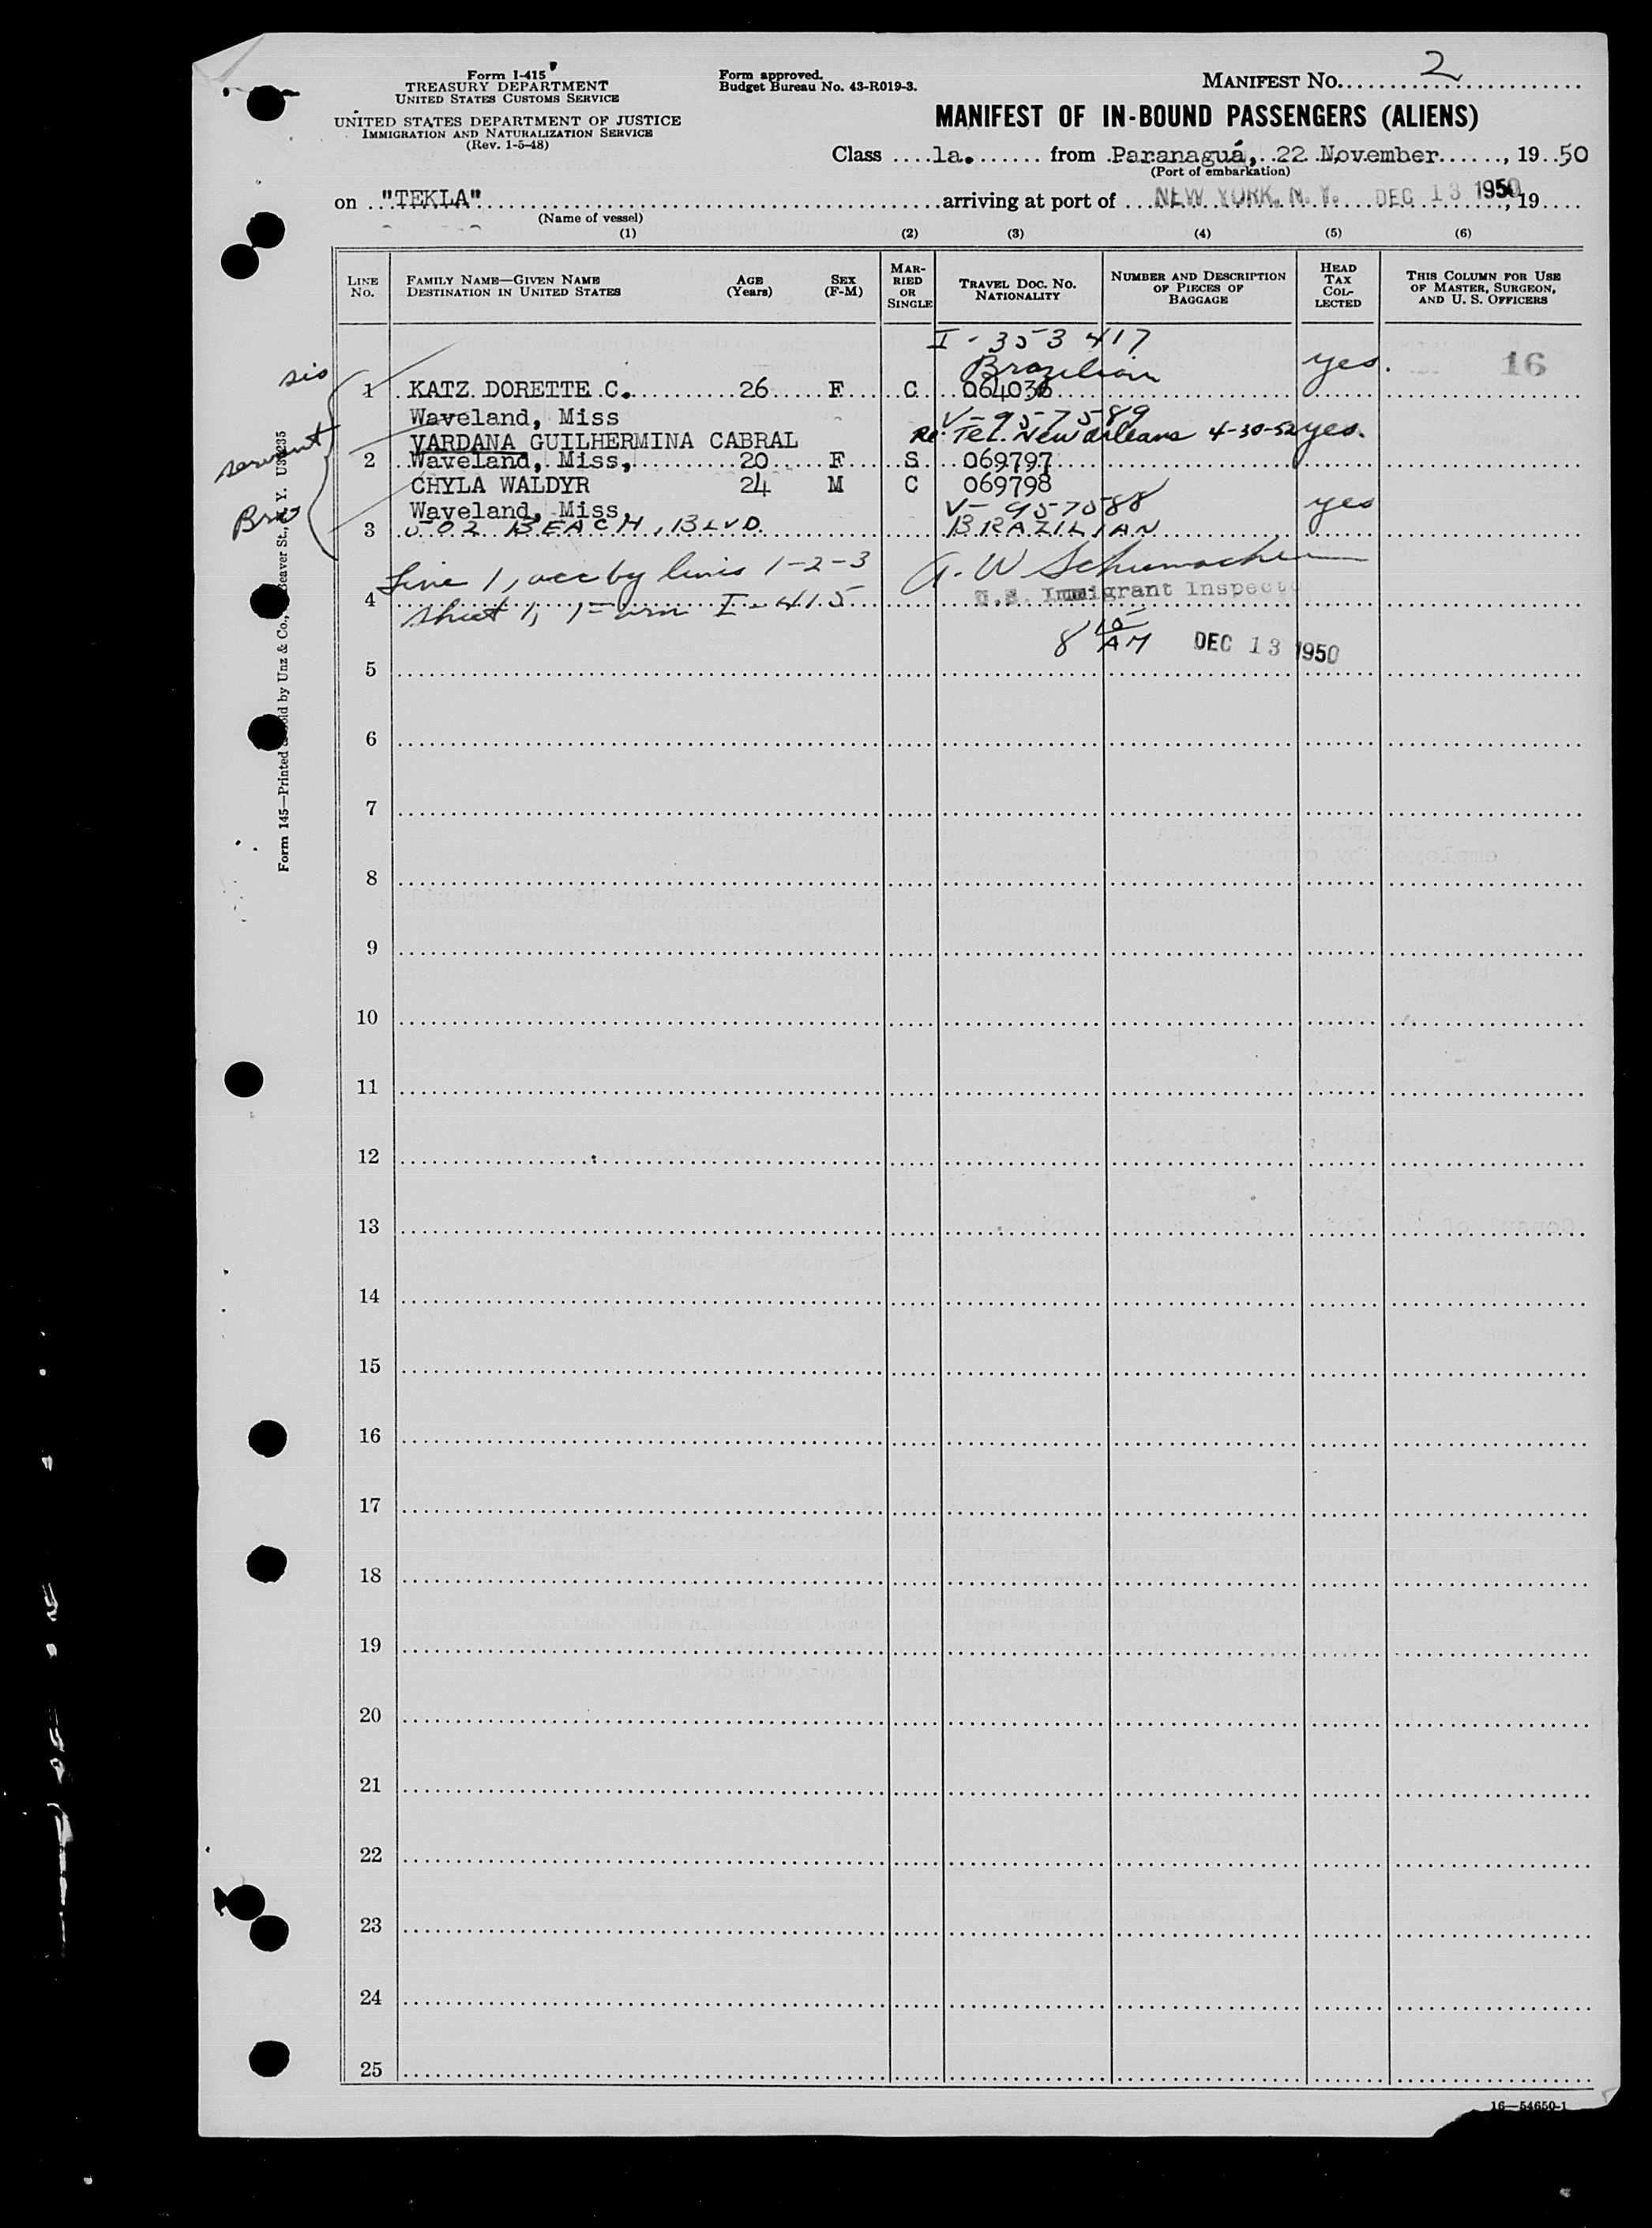 Form I-415
TREASURY DEPARTMENT
UNITED STATES CUSTOMS SERVICE
UNITED STATES DEPARTMENT OF JUSTICE
IMMIGRATION AND NATURALIZATION SERVICE
(Rev. 1-5-48)
Form approved.
Budget Bureau No. 43-R019-3.
MANIFEST NO. 2
MANIFEST OF IN-BOUND PASSENGERS (ALIENS)
Class 1a. from Paranaguá, 22 November, 19 50
(Port of embarkation)
on "TEKLA" arriving at port of NEW YORK, N. Y. DEC 13 1950, 19
(Name of vessel)
(1) (2) (3) (4) (5) (6)
LINE NO. FAMILY NAME—GIVEN NAME DESTINATION IN UNITED STATES AGE (Years) SEX (F-M) MARRIED OR SINGLE TRAVEL DOC. NO. NATIONALITY NUMBER AND DESCRIPTION OF PIECES OF BAGGAGE HEAD TAX COLLECTED THIS COLUMN FOR USE OF MASTER, SURGEON, AND U. S. OFFICERS
I-353417
Brazilian yes. 16
sis
1 KATZ DORETTE C. 26 F C 064036
Waveland, Miss V-957589
VARDANA GUILHERMINA CABRAL Re: Tel. New Orleans 4-30-52 yes.
servant
2 Waveland, Miss, 20 F S 069797
CHYLA WALDYR 24 M C 069798
Waveland, Miss, V-957588 yes
Bro
3 502 BEACH, BLVD. BRAZILIAN
Line 1, acc by lines 1-2-3
4 sheet 1, I-415
A. W Schumacher
U.S. Immigrant Inspector
8 15 AM DEC 13 1950
5
6
7
8
9
10
11
12
13
14
15
16
17
18
19
20
21
22
23
24
25
Form 145—Printed & Sold by Unz & Co., Beaver St., N. Y.
16—54650-1